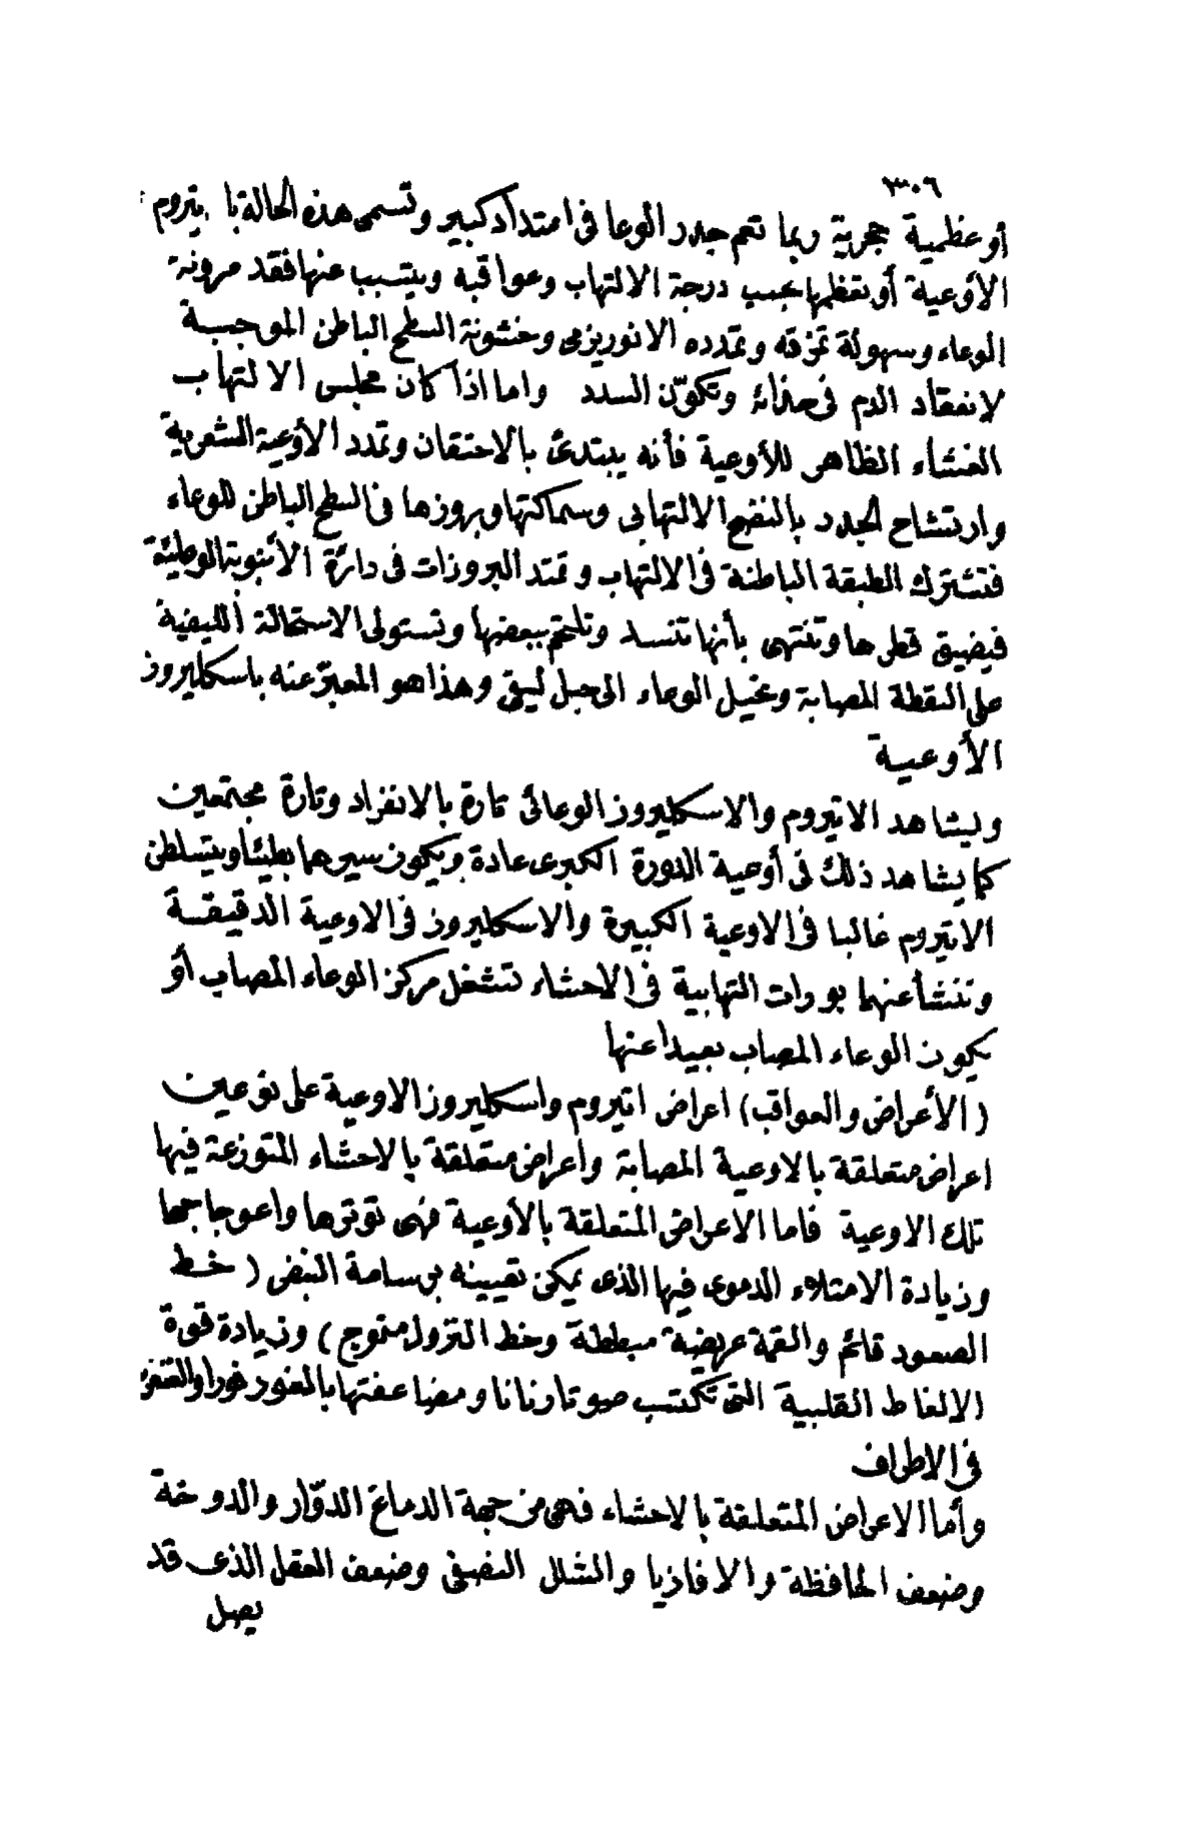 ٣٠٦
أو عظمية حجرية ربما تعم جدر الوعا فى امتداد كبير وتسمى هذه الحالة با تيروم
الأوعية أو تعظمها بحسب درجة الالتهاب وعواقبه ويتسبب عنها فقد مرونة
الوعاء وسهولة تمزقه وتمدده الانوريزمى وخشونة السطح الباطن الموجبة
لانعقاد الدم فى حذائه وتكوّن السدد واما اذا كان مجلس الالتهاب
الغشاء الظاهر للأوعية فأنه يبتدئ بالاحتقان وتمدد الأوعية الشعرية
وارتشاح الجدر بالنضح الالتهابى وسماكتها وبروزها فى السطح الباطن للوعاء
فتشترك الطبقة الباطنة فى الالتهاب وتمتد البروزات فى دائرة الأنبوبة الوعائية
فيضيق قطرها وتنتهى بأنها تنسد وتلتحم ببعضها وتستولى الاستحالة الليفية
على النقطة المصابة ويحيل الوعاء الى حبل ليفى وهذا هو المعبر عنه باسكليروز
الأوعية
ويشاهد الاتيروم والاسكليروز الوعائى تارة بالانفراد وتارة مجتمعين
كما يشاهد ذلك فى أوعية الدورة الكبرى عادة ويكون سيرهما بطيئا ويتسلطن
الاتيروم غالبا فى الاوعية الكبيرة والاسكليروز فى الاوعية الدقيقة
وتنشأ عنهما بورات التهابية فى الاحشاء تشغل مركز الوعاء المصاب أو
يكون الوعاء المصاب بعيدا عنها
(الأعراض والعواقب) اعراض اتيروم واسكليروز الاوعية على نوعين
اعراض متعلقة بالاوعية المصابة واعراض متعلقة بالاحشاء المتوزعة فيها
تلك الاوعية فاما الاعراض المتعلقة بالأوعية فهى توترها واعوجاجها
وزيادة الامتلاء الدموى فيها الذى يمكن تعيينه برسامة النبض (خط
الصعود قائم والقمة عريضة مبططة وخط النزول متموج) وزيادة قوة
الالغاط القلبية التى تكتسب صوتا رنانا ومضاعفتها بالمغور فورا والتغنغر
فى الاطراف
وأما الاعراض المتعلقة بالاحشاء فهى من جهة الدماغ الدوّار والدوخة
وضعف الحافظة والافازيا والشلل النصفى وضعف العقل الذى قد
يصل